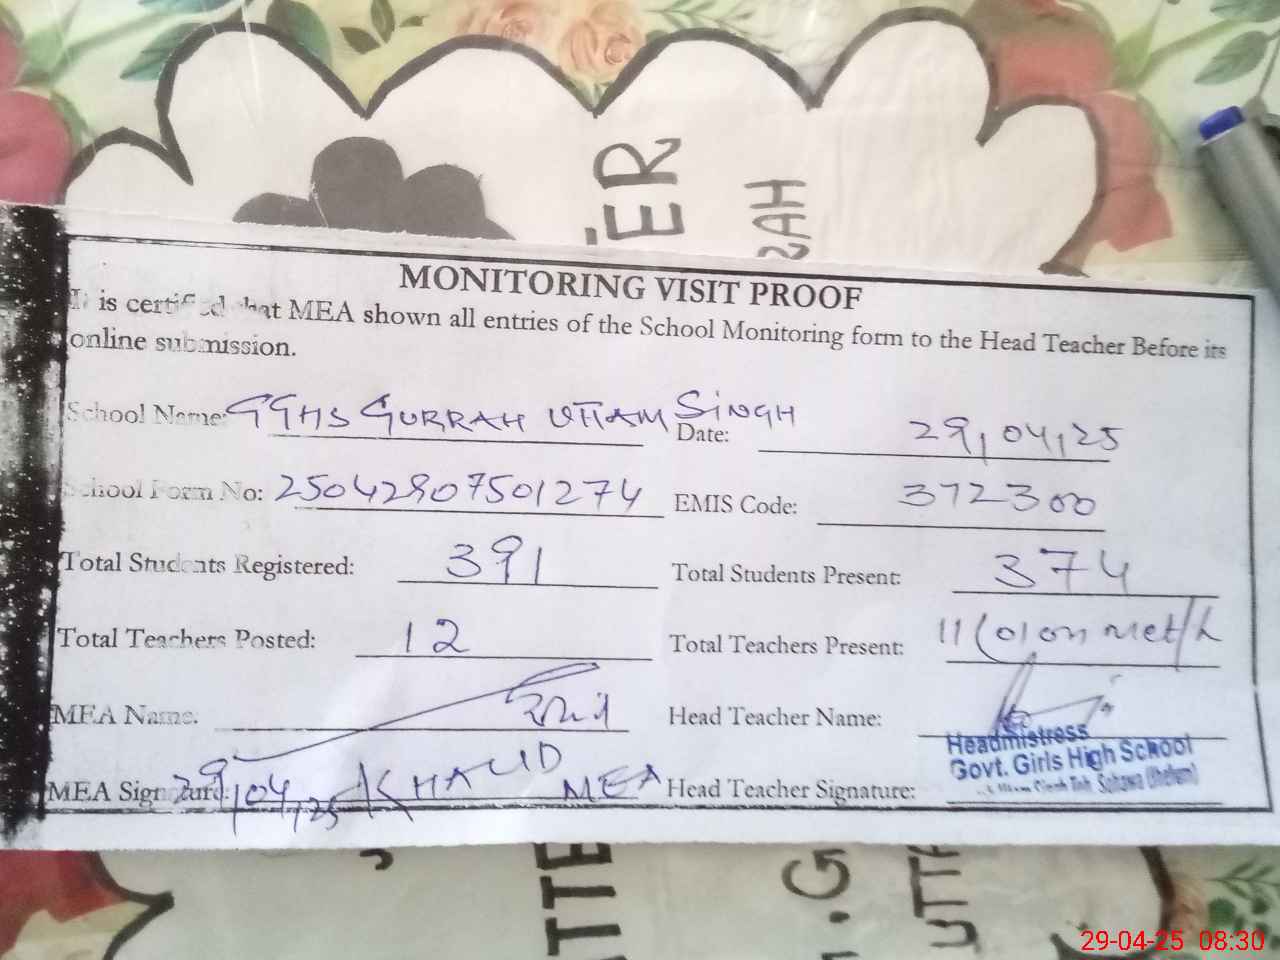 ER
RAH
MONITORING VISIT PROOF
It is certified that MEA shown all entries of the School Monitoring form to the Head Teacher Before its
online submission.
School Name: GGHS GURRAH UTTAM SINGH Date: 29,04,25
School Form No: 25042907501274 EMIS Code: 372300
Total Students Registered: 391 Total Students Present: 374
Total Teachers Posted: 12 Total Teachers Present: 11 (01 on Met/L
MEA Name: Head Teacher Name:
Headmistress
Govt. Girls High School
Sohawa (Jhelum)
MEA Signature: 29,04,25 KHALID MEA Head Teacher Signature:
TTE
.G
UTT
29-04-25 08:30